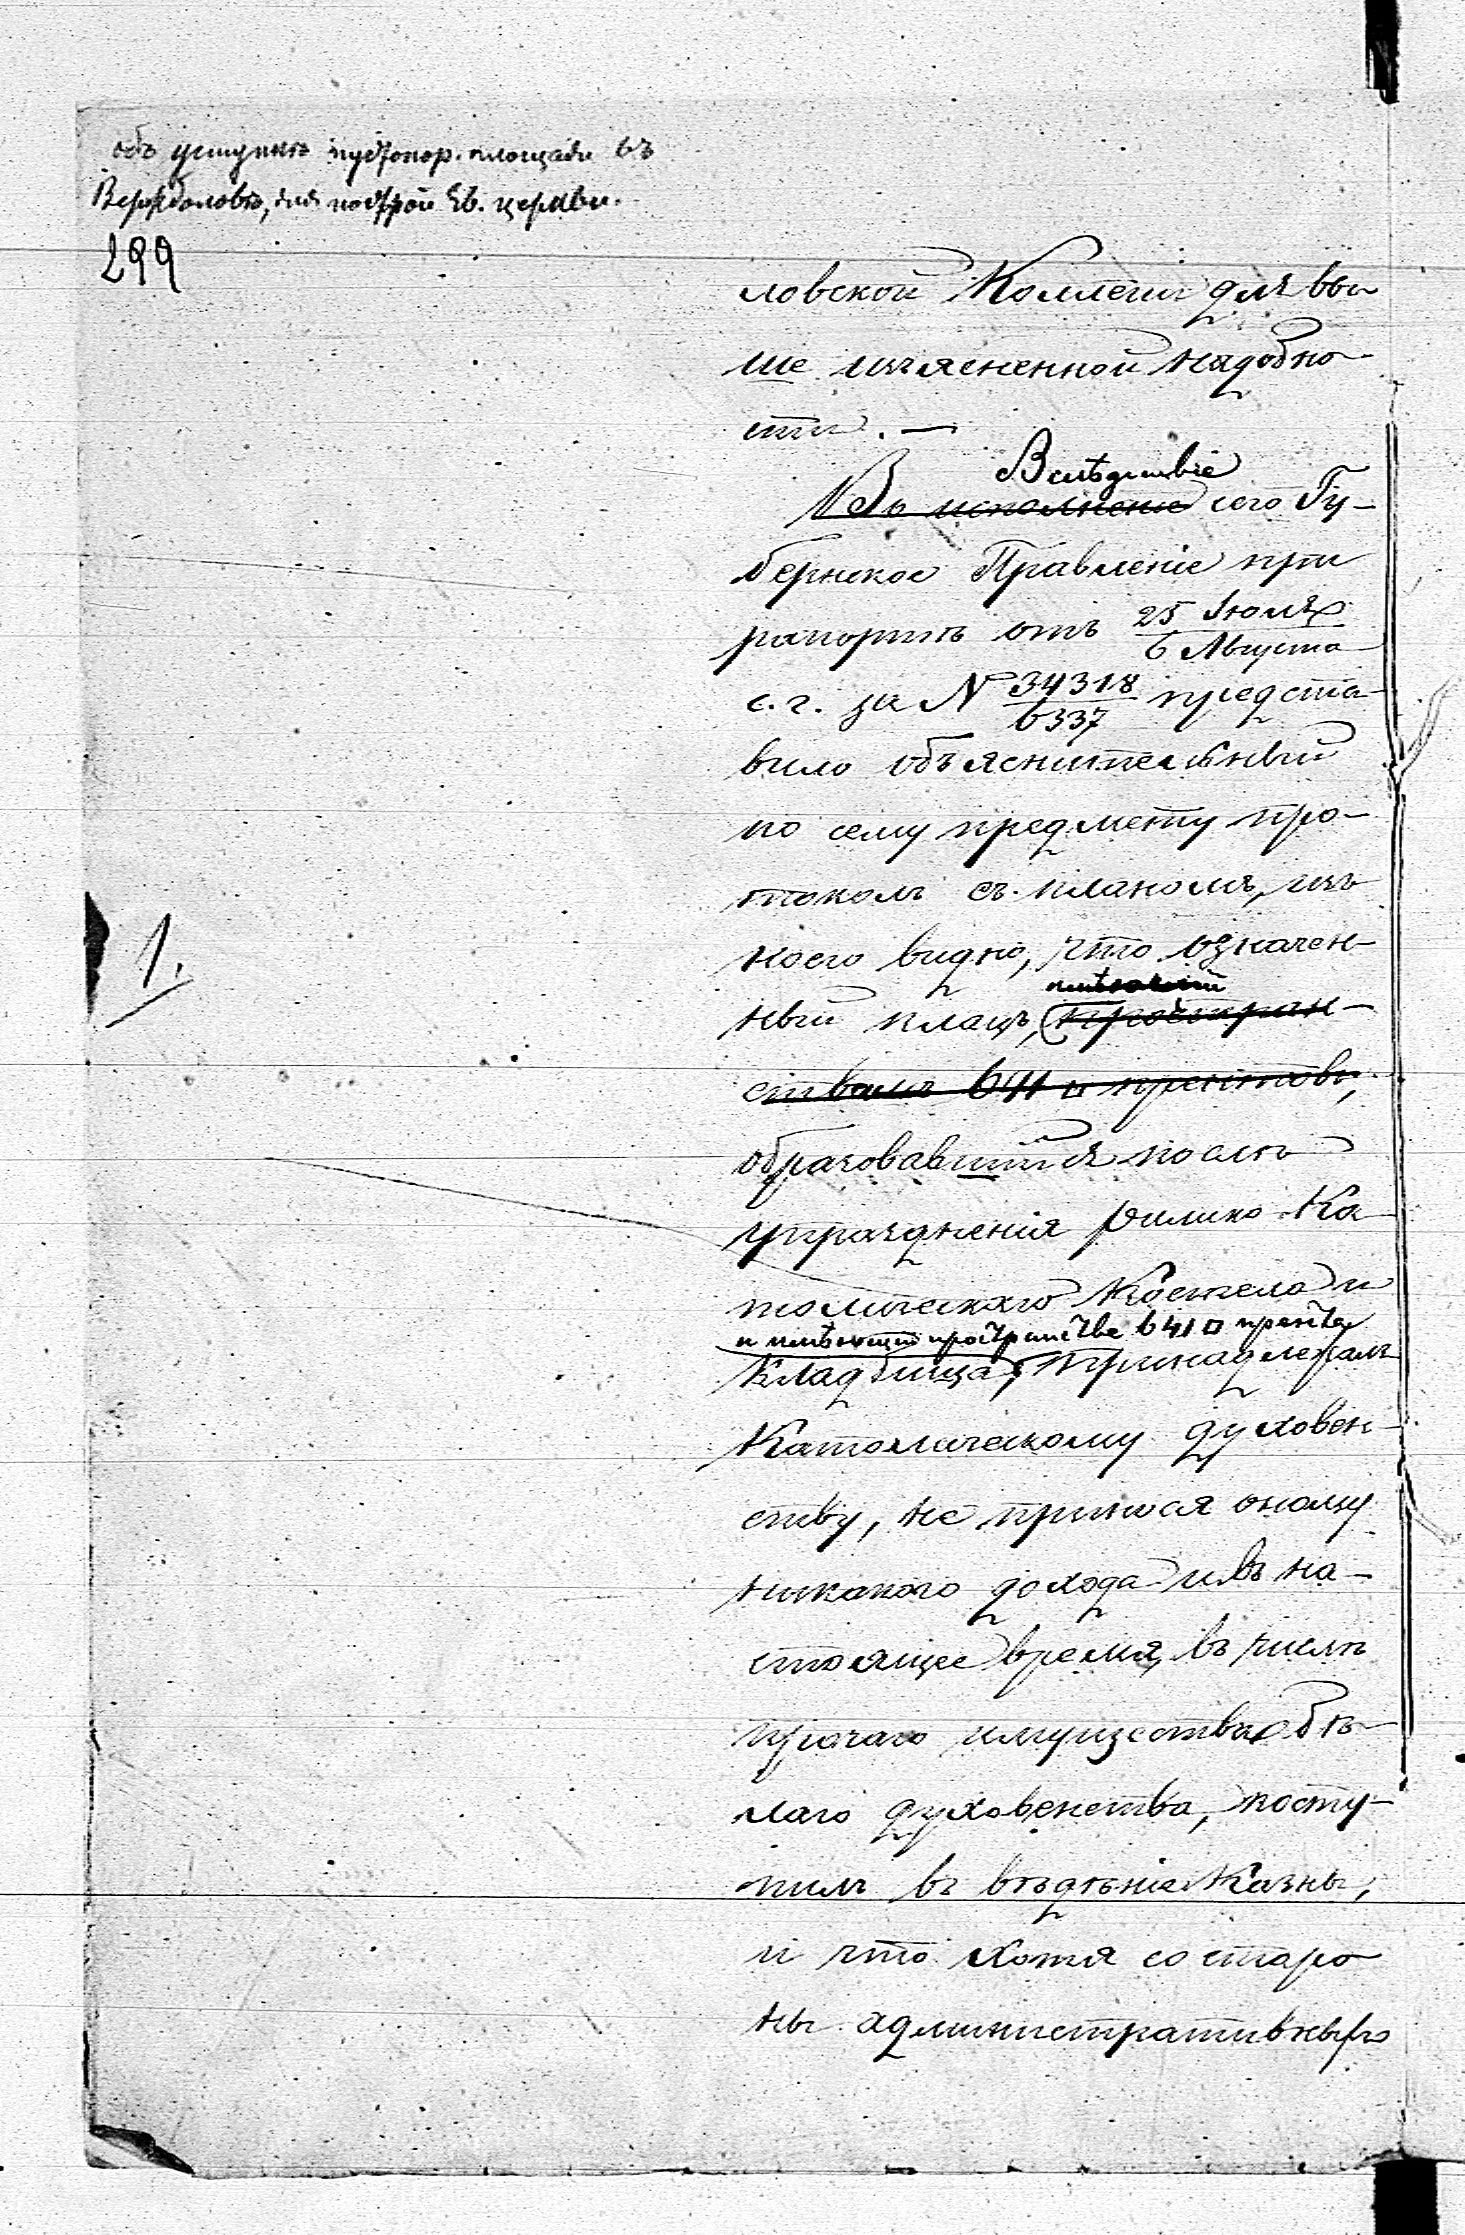 объ уступкѣ пустопор. площади въ
Вержболовѣ, для построй Ев. церкви.
299
ловской Коллегіи для вы
ше изъясненной надобно
сти. —
Вслѣдствіе
Во исполненіе сего Гу-
бернское Правленіе при
рапортѣ отъ 25 Іюля
6 Августа
с. г. за № 34318
6337 предста-
вило объяснительный
по сему предмету про-
токолъ съ планомъ, изъ
коего видно, что означен-
имѣющій
ный плацъ, (простран-
ствомъ 641 □ прентовъ,
образовавшійся послѣ
1.
упраздненія римско-Ка-
толическаго Костела и
и имѣющій пространства 641 □ прента
Кладбища, принадлежалъ
Католическому духовен-
ству, не принося оному
никакого дохода и въ на-
стоящее время, въ числѣ
прочаго имущества бѣ-
лаго духовенства, посту-
пилъ въ вѣдѣніе Казны,
и что хотя со старо
ны административныхъ